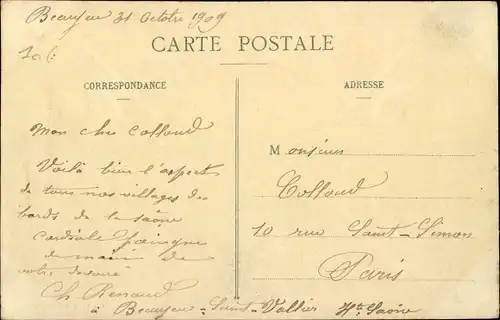 Beaujeu 31 Octobre 1909
CARTE POSTALE
CORRESPONDANCE
ADRESSE
Mon cher Colloud
Monsieur
Voilà bien l'aspect
de tous nos villages des
bords de la Saône
Cordiale poignée
de main de
votre dévoué
Ch Renaud
Colloud
10 rue Saint-Simon
Paris
à Beaujeu-Saint-Vallier Hte Saône